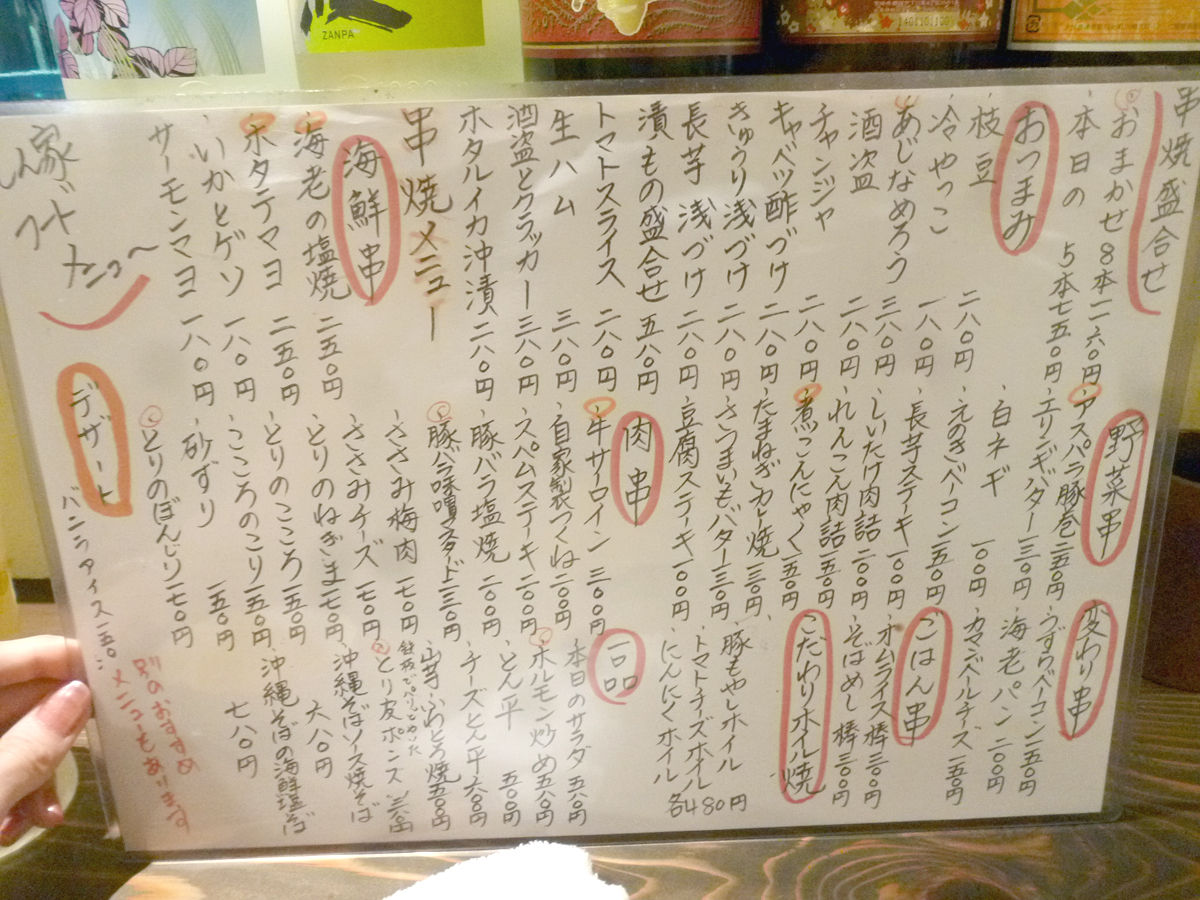 ZANPA
串焼盛合せ
おまかせ 8本 一一六〇円
本日の 5本 七五〇円
おつまみ
枝豆 二八〇円
冷やっこ 一八〇円
あじなめろう 三八〇円
酒盗 二八〇円
チャンジャ 二八〇円
キャベツ酢づけ 二八〇円
きゅうり浅づけ 二八〇円
長芋浅づけ 二八〇円
漬もの盛合せ 五八〇円
トマトスライス 二八〇円
生ハム 三八〇円
酒盗とクラッカー 三八〇円
ホタルイカ沖漬 二八〇円
串焼メニュー
海鮮串
海老の塩焼 二五〇円
ホタテマヨ 二五〇円
いかとゲソ 一八〇円
サーモンマヨ 一八〇円
家
フード
メニュ〜
野菜串
アスパラ豚巻 二五〇円
エリンギバター 一三〇円
白ネギ 一〇〇円
えのきベーコン 一五〇円
長芋ステーキ 一〇〇円
しいたけ肉詰 二〇〇円
れんこん肉詰 一五〇円
煮こんにゃく 一五〇円
たまねぎカレー焼 一三〇円
さつまいもバター 一三〇円
豆腐ステーキ 一〇〇円
肉串
牛サーロイン 三〇〇円
自家製つくね 二〇〇円
スパムステーキ 二〇〇円
豚バラ塩焼 二〇〇円
豚バラ味噌マスタード 二三〇円
ささみ梅肉 一七〇円
ささみチーズ 一七〇円
とりのねぎま 一七〇円
とりのこころ 一五〇円
こころのこり 一五〇円
砂ずり 一五〇円
とりのぼんじり 一七〇円
デザート
バニラアイス 一五〇
変わり串
うずらベーコン 一五〇円
海老パン 二〇〇円
カマンベールチーズ 二五〇円
ごはん串
オムライス棒 二〇〇円
そばめし棒 二〇〇円
こだわりホイル焼
豚もやしホイル
トマトチーズホイル
にんにくホイル
各480円
一品
本日のサラダ 五八〇円
ホルモン炒め 五八〇円
とん平 五〇〇円
チーズとん平 六〇〇円
山芋ふわとろ焼 五五〇円
鉄板でパリッとやいた
とり皮ポンズ
沖縄そばソース焼そば
六八〇円
沖縄そばの海鮮塩そば
七八〇円
別のおすすめ
メニューもあります